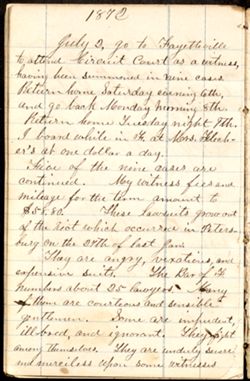 1872
July 2, go to Fayetteville
to attend Circuit Court as a witness,
having been summoned in nine cases
Return home Saturday evening 6th,
and go back Monday morning 8th.
Return home Tuesday night 9th.
I board while in F. at Mrs.
er's at one dollar a day.
Five of the nine cases are
continued. My witness fees and
mileage for the term amount to
These lawsuits grow out
of the riot which occurred in Peters-
burg on the 29th of last June
They are angry, vexatious, and
expensive suits. The Bar of F.
numbers about 25 lawyers. Many
of them are courteous and sensible
gentlemen. Some are impudent,
illbred, and ignorant. They fight
among themselves. They are unduly severe
and merciless upon some witnesses